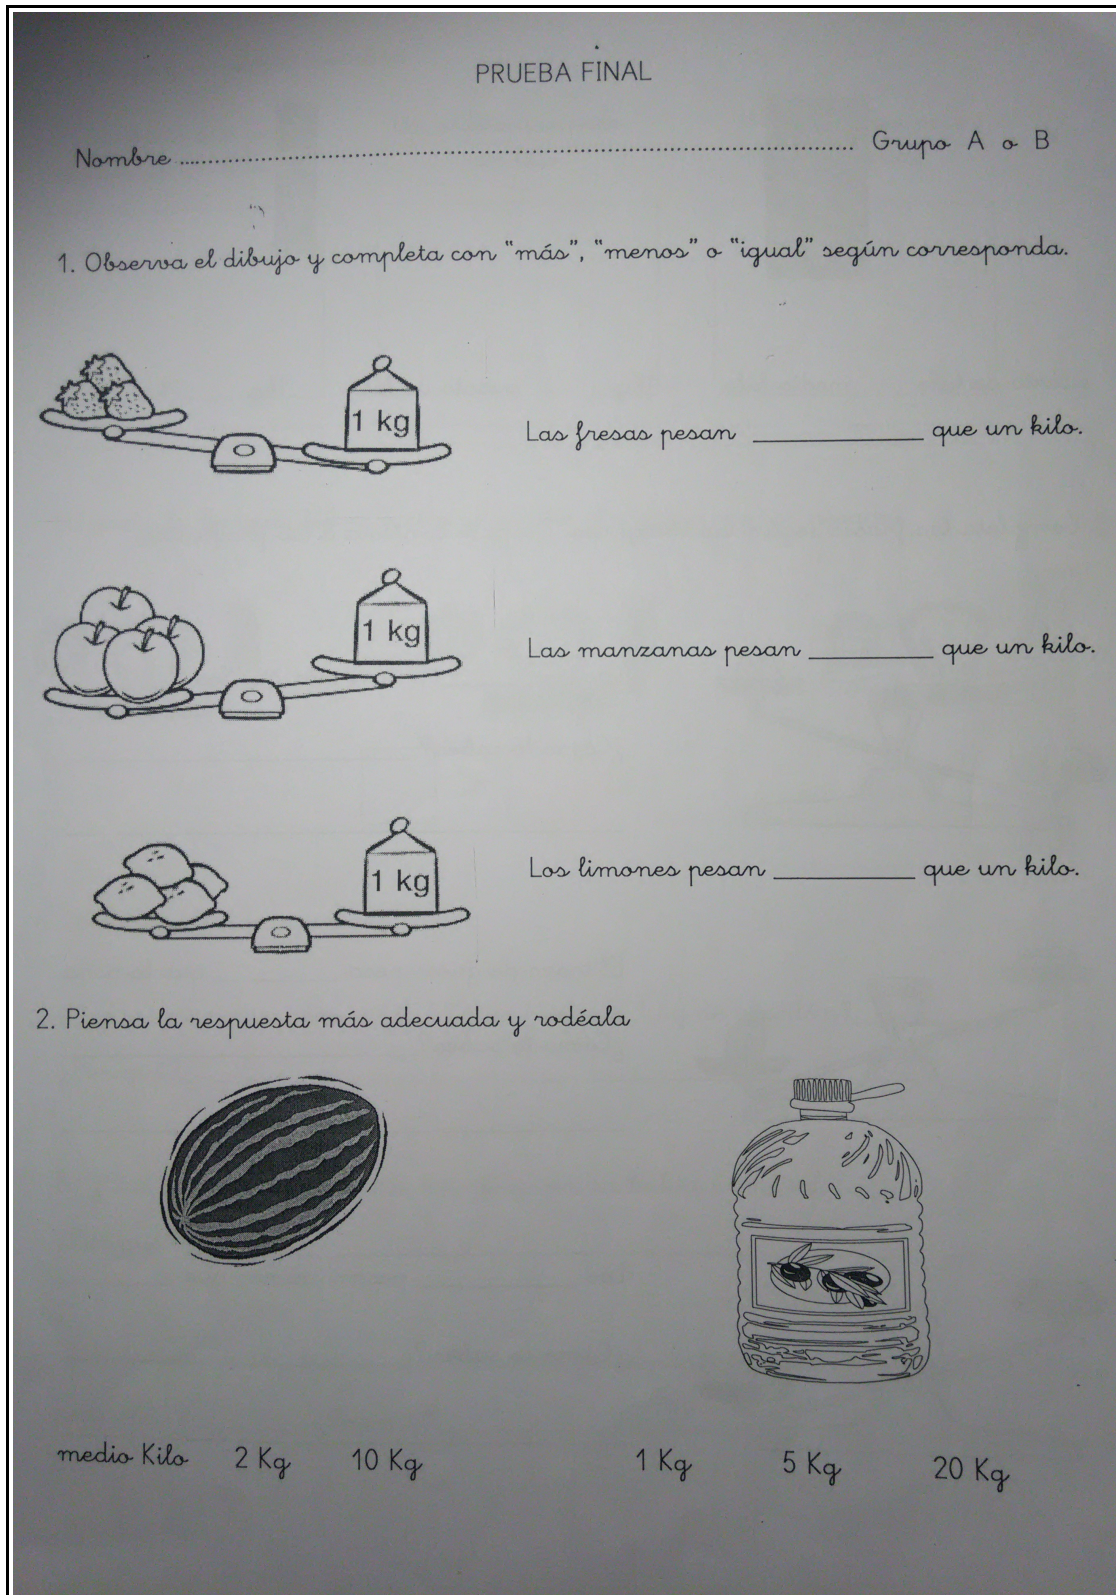 PRUEBA FINAL
Nombre ........................................................................................................ Grupo A o B
1. Observa el dibujo y completa con "más", "menos" o "igual" según corresponda.
1 kg
Las fresas pesan ____________ que un kilo.
1 kg
Las manzanas pesan _________ que un kilo.
1 kg
Los limones pesan __________ que un kilo.
2. Piensa la respuesta más adecuada y rodéala
medio Kilo 2 Kg 10 Kg 1 Kg 5 Kg 20 Kg